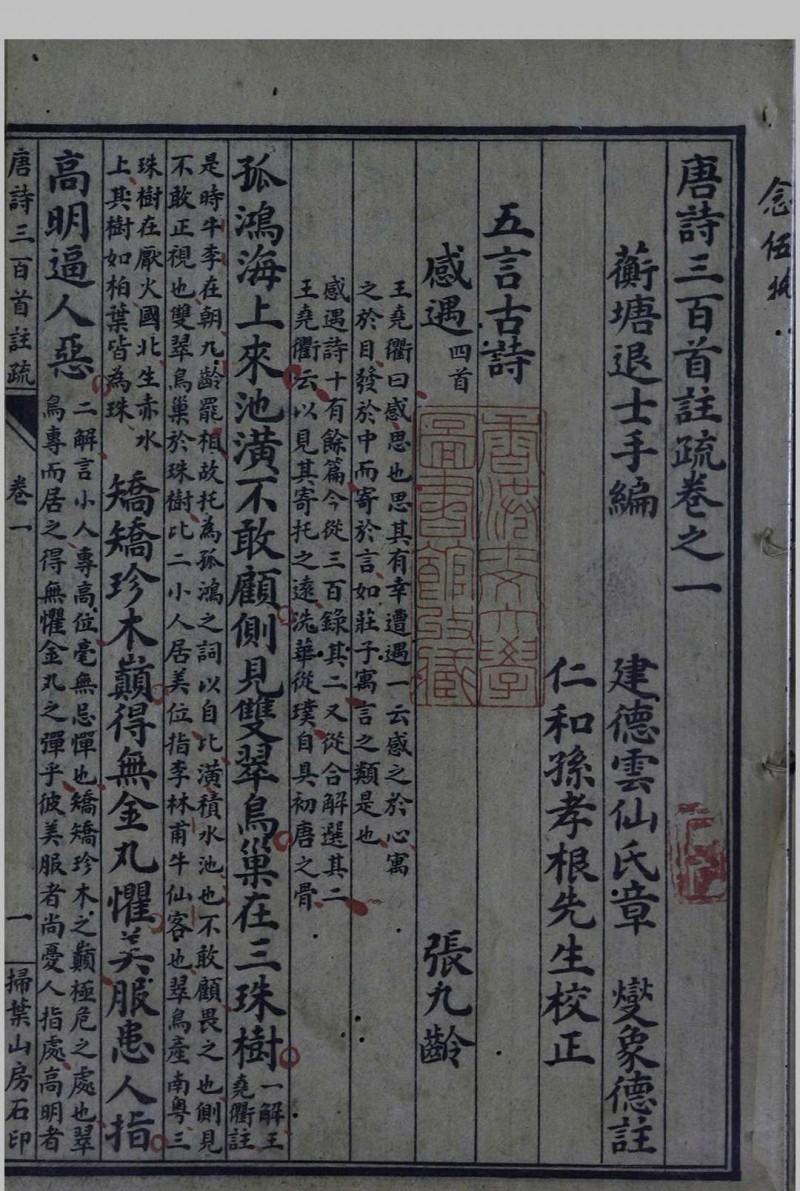 唐詩三百首註疏卷之一
蘅塘退士手編　建德雲仙氏章　燮象德註
仁和孫孝根先生校正
五言古詩
感遇四首　張九齡
王堯衢曰感思也思其有幸遭遇一云感之於心寓
之於目發於中而寄於言如莊子寓言之類是也
感遇詩十有餘篇今從三百錄其二又從合解選其二
王堯衢云以見其寄托之遠洗華從璞自具初唐之骨
孤鴻海上來池潢不敢顧側見雙翠鳥巢在三珠樹一解王堯衢註
是時牛李在朝九齡罷相故托為孤鴻之詞以自比潢積水池也不敢顧畏之也側見
不敢正視也雙翠鳥巢於珠樹比二小人居美位指李林甫牛仙客也翠鳥產南粵三
珠樹在厭火國北生赤水上其樹如柏葉皆為珠矯矯珍木巔得無金丸懼美服患人指
高明逼人惡二解言小人專高位毫無忌憚也矯矯珍木之巔極危之處也翠
鳥專而居之得無懼金丸之彈乎彼美服者尚憂人指處高明者
唐詩三百首註疏　卷一　一　掃葉山房石印
香港大學
圖書館
念伍